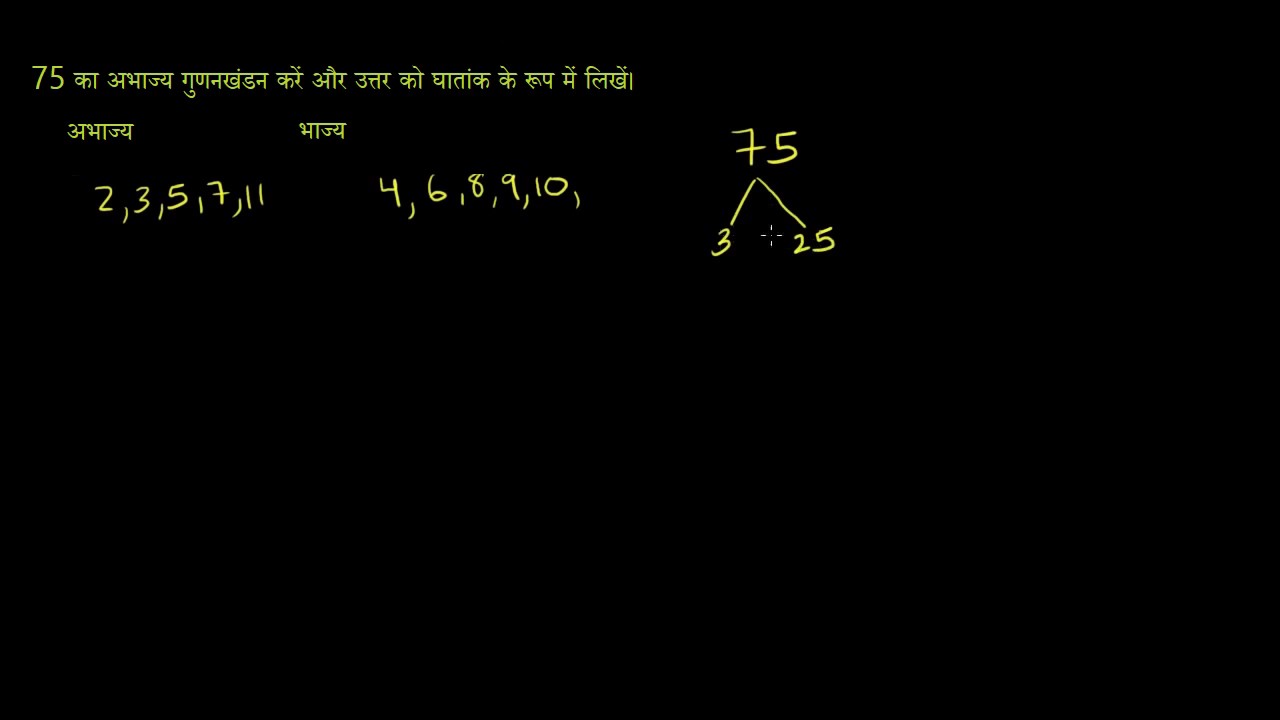 75 का अभाज्य गुणनखंडन करें और उत्तर को घातांक के रूप में लिखें।
अभाज्य भाज्य
2,3,5,7,11 4,6,8,9,10,
75
3 25